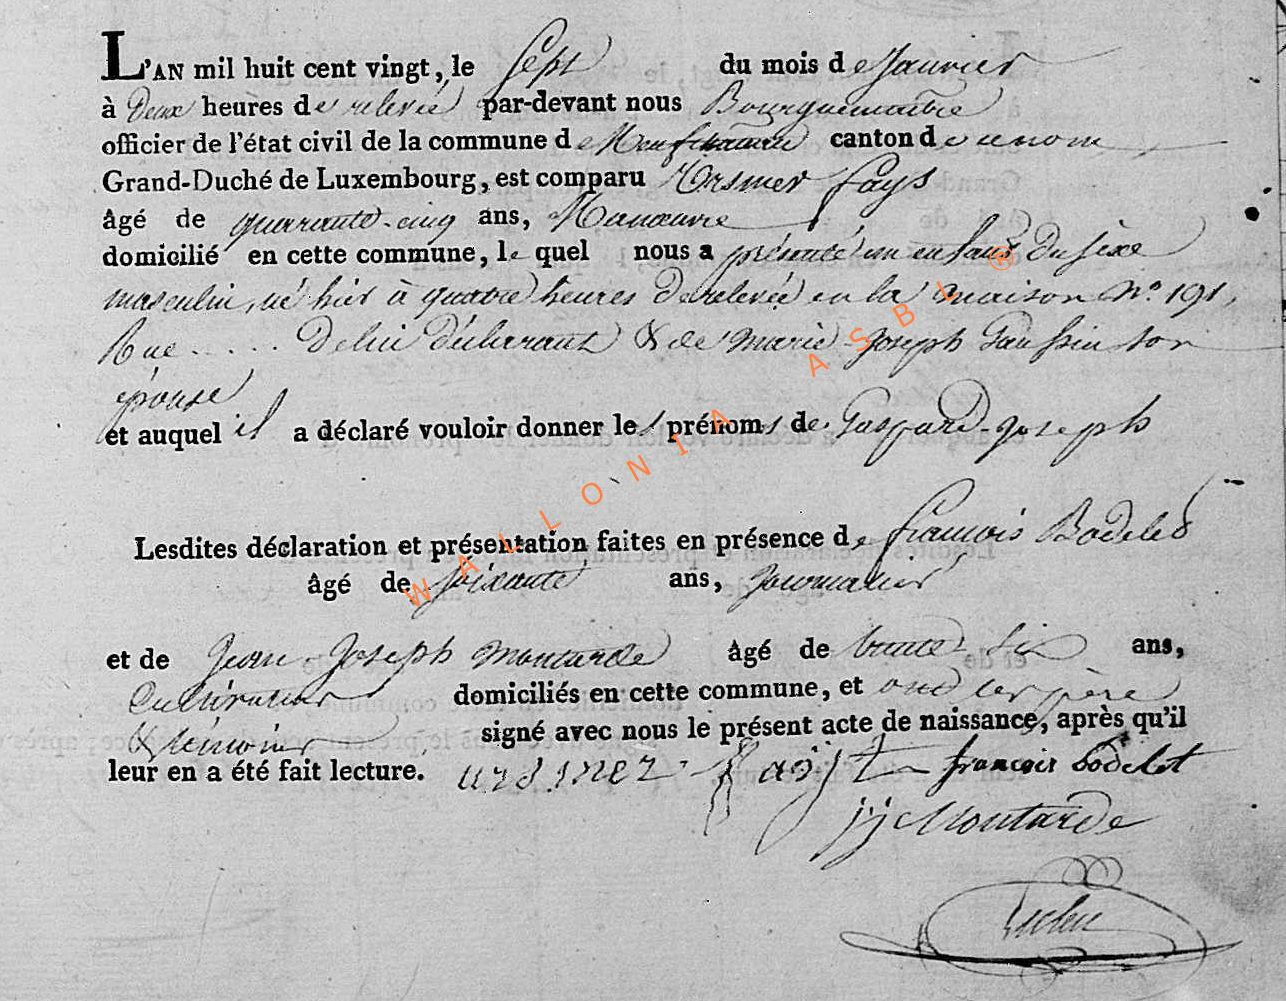 L'AN mil huit cent vingt, le sept du mois de Janvier
à Deux heures de relevée par-devant nous Bourguemaitre
officier de l'état civil de la commune de Neufchateau canton de ce nom
Grand-Duché de Luxembourg, est comparu Ursmer Fays
âgé de quarante-cinq ans, Manœuvre
domicilié en cette commune, le quel nous a présenté un enfant du sexe
masculin, né hier à quatre heures de relevée en la maison N.° 191,
Rue ..... De lui déclarant & de Marie-Joseph son
épouse
et auquel il a déclaré vouloir donner les prénoms de Gaspard-Joseph
Lesdites déclaration et présentation faites en présence de françois Bodelet
âgé de soixante ans, Journalier
et de Jean-Joseph Moutarde âgé de trente-six ans,
Cultivateur domiciliés en cette commune, et ont les père
& témoins signé avec nous le présent acte de naissance, après qu'il
leur en a été fait lecture. ursmez fays françois bodelet
jj Moutarde
WALLONIA ASBL ®